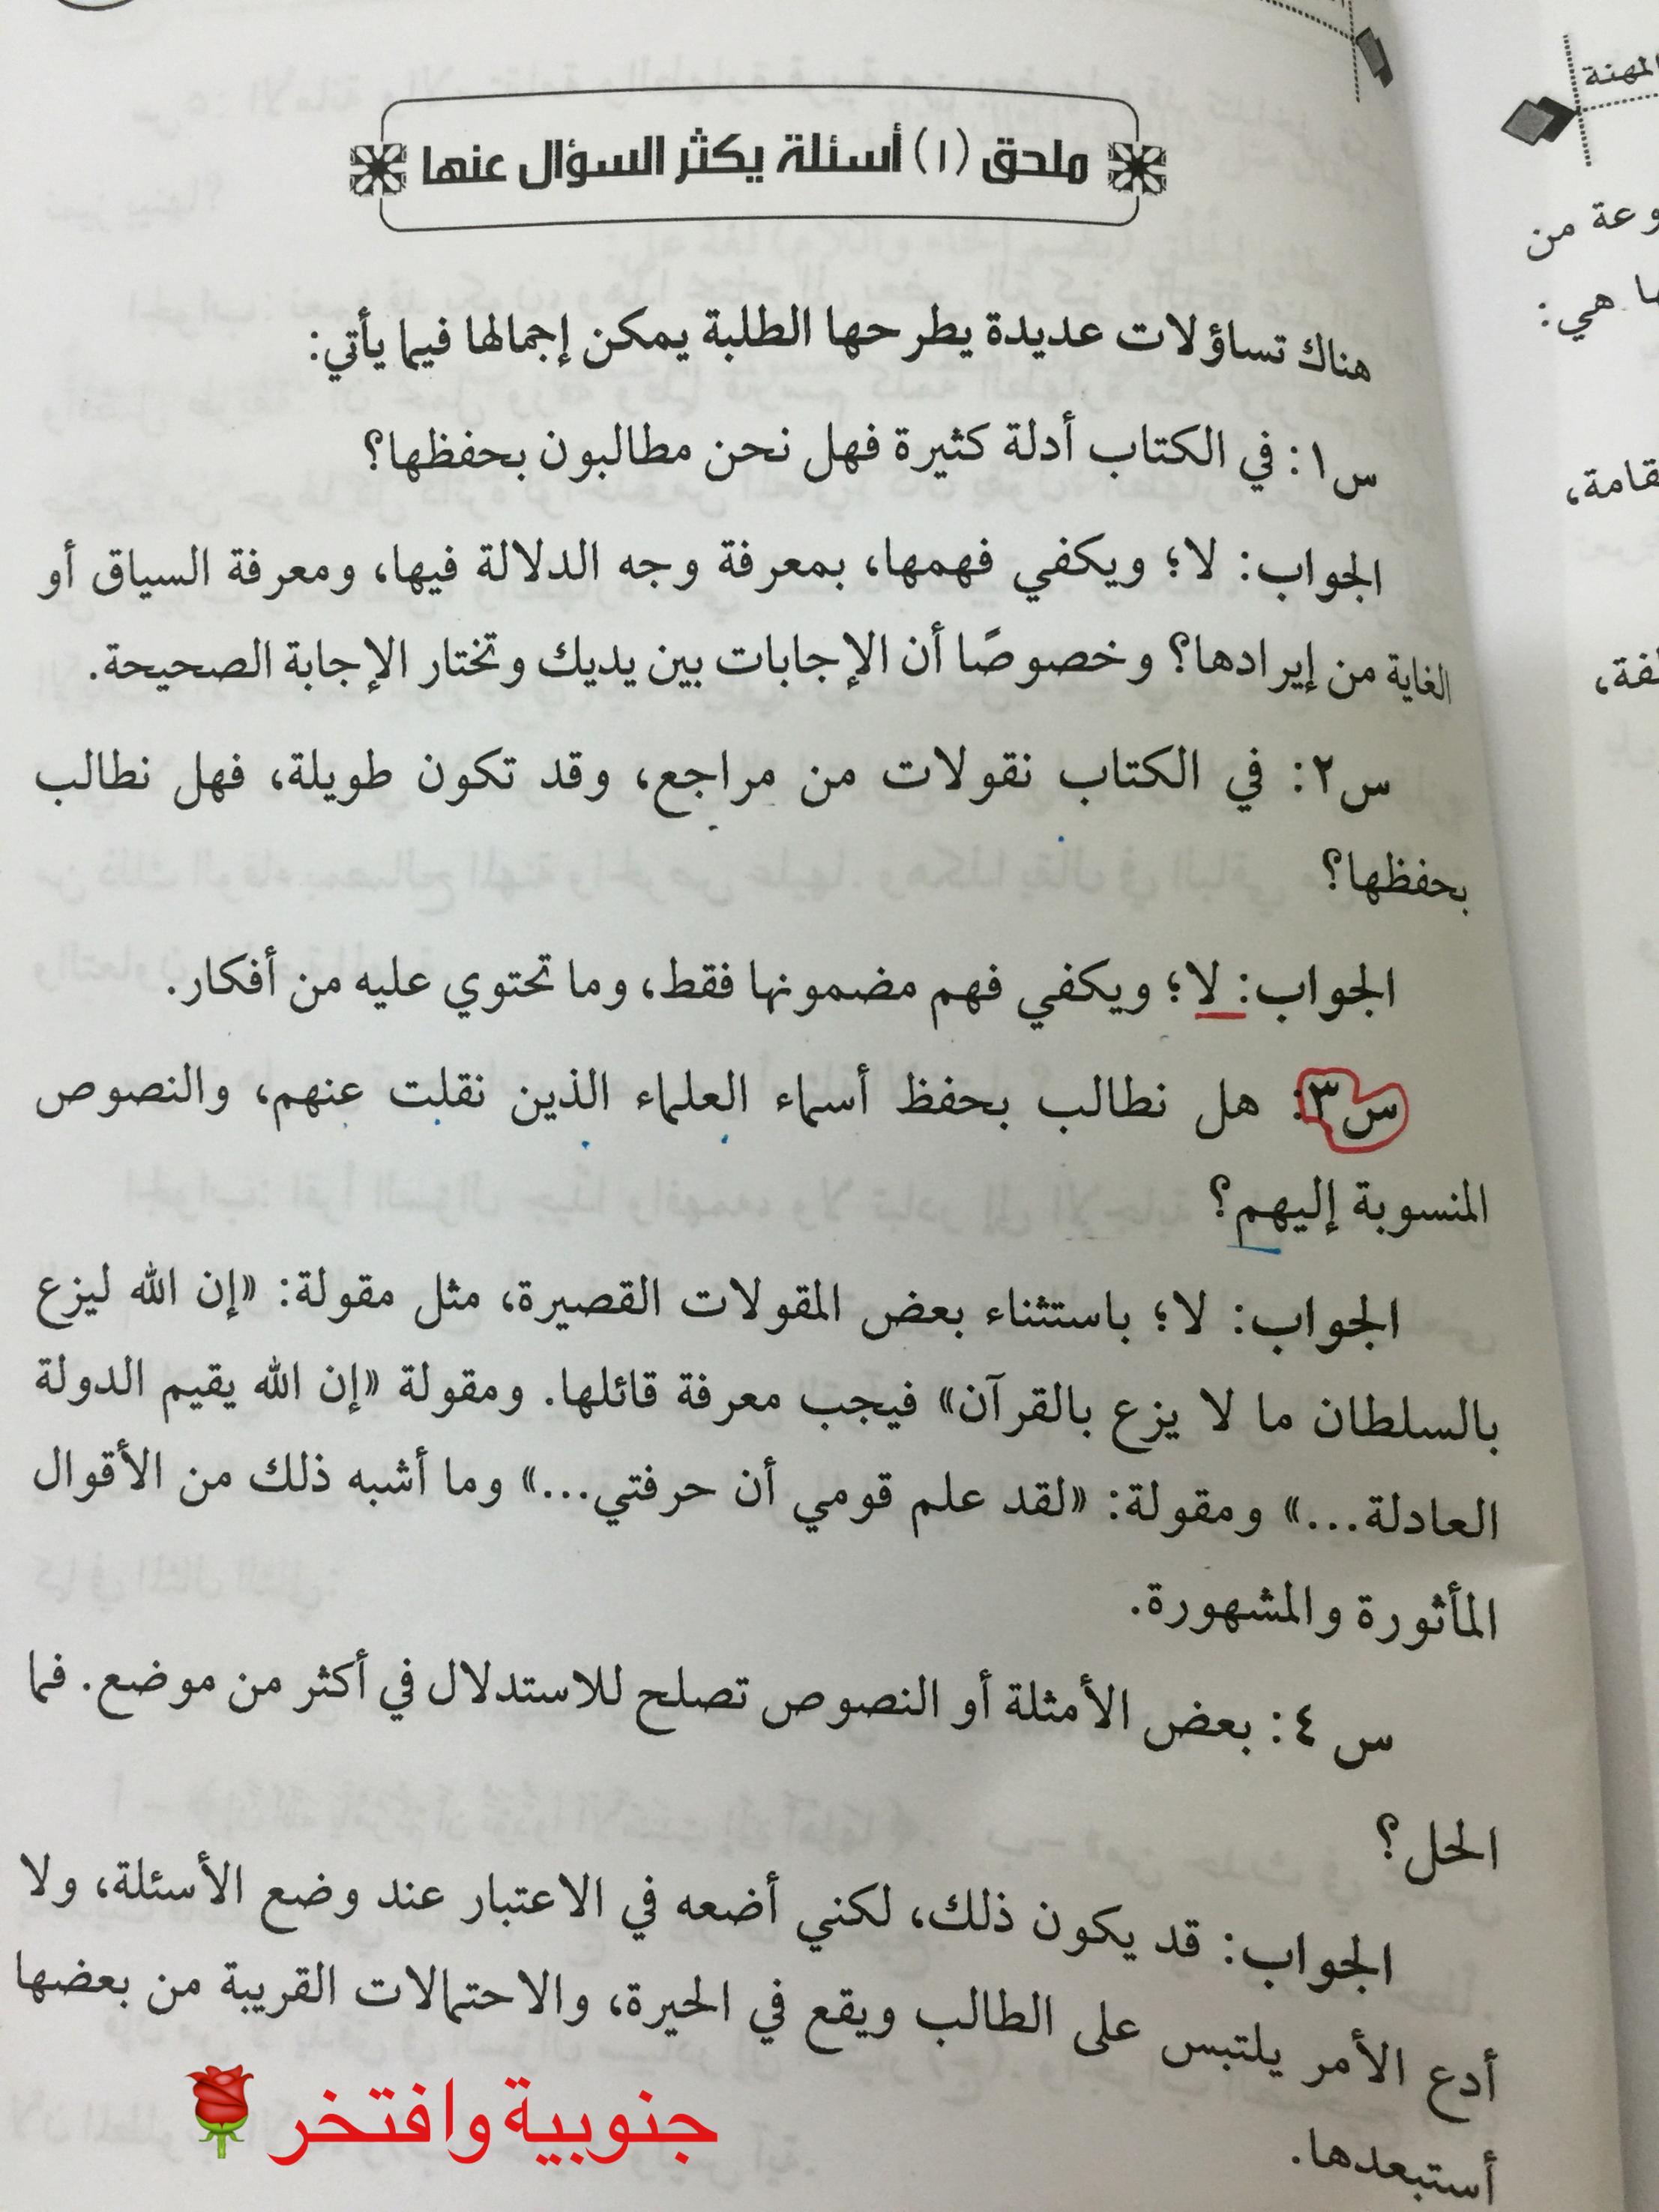 ملحق (١) أسئلة يكثر السؤال عنها
هناك تساؤلات عديدة يطرحها الطلبة يمكن إجمالها فيما يأتي:
س١: في الكتاب أدلة كثيرة فهل نحن مطالبون بحفظها؟
الجواب: لا؛ ويكفي فهمها، بمعرفة وجه الدلالة فيها، ومعرفة السياق أو
الغاية من إيرادها؟ وخصوصًا أن الإجابات بين يديك وتختار الإجابة الصحيحة.
س٢: في الكتاب نقولات من مراجع، وقد تكون طويلة، فهل نطالب
بحفظها؟
الجواب: لا؛ ويكفي فهم مضمونها فقط، وما تحتوي عليه من أفكار.
س٣: هل نطالب بحفظ أسماء العلماء الذين نقلت عنهم، والنصوص
المنسوبة إليهم؟
الجواب: لا؛ باستثناء بعض المقولات القصيرة، مثل مقولة: «إن الله ليزع
بالسلطان ما لا يزع بالقرآن» فيجب معرفة قائلها. ومقولة «إن الله يقيم الدولة
العادلة...» ومقولة: «لقد علم قومي أن حرفتي...» وما أشبه ذلك من الأقوال
المأثورة والمشهورة.
س ٤: بعض الأمثلة أو النصوص تصلح للاستدلال في أكثر من موضع. فما
الحل؟
الجواب: قد يكون ذلك، لكني أضعه في الاعتبار عند وضع الأسئلة، ولا
أدع الأمر يلتبس على الطالب ويقع في الحيرة، والاحتمالات القريبة من بعضها
أستبعدها.
جنوبية وافتخر🌹
المهنة
من
هي: